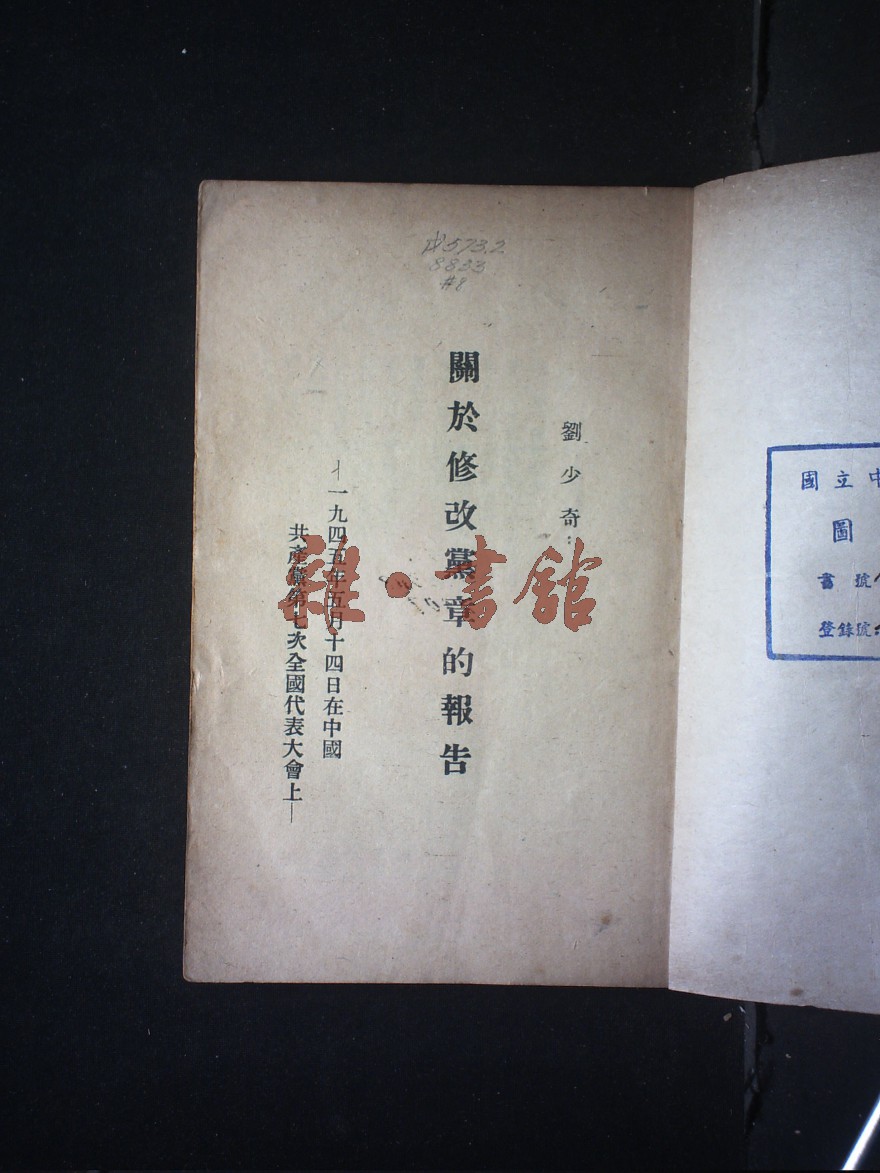 國立中
圖
書號
登錄號
中573.2
8833
#8
劉少奇：
關於修改黨章的報告
—一九四五年五月十四日在中國
共產黨第七次全國代表大會上—
雜·書館